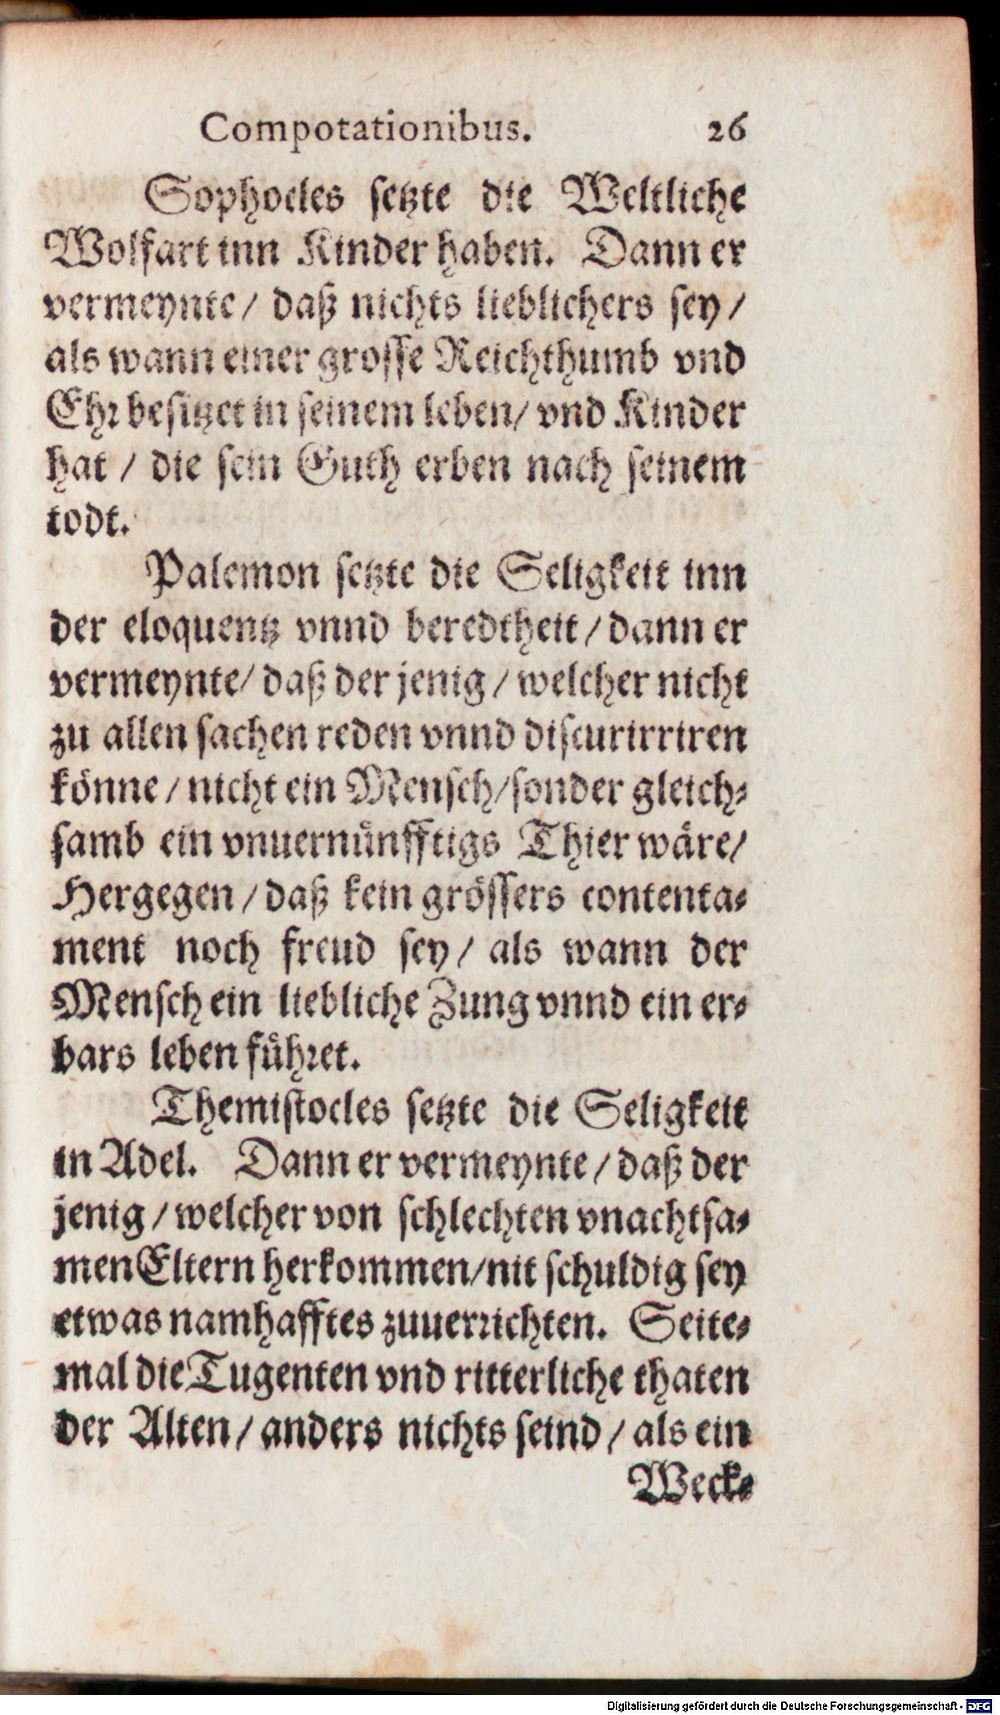 Compotationibus. 26
Sophocles setzte die Weltliche
Wolfart inn Kinder haben. Dann er
vermeynte / daß nichts lieblichers sey /
als wann einer grosse Reichthumb vnd
Ehr besitzet in seinem leben / vnd Kinder
hat / die sein Guth erben nach seinem
todt.
Palemon setzte die Seligkeit inn
der eloquentz vnnd beredtheit / dann er
vermeynte / daß der jenig / welcher nicht
zu allen sachen reden vnnd discurirriren
könne / nicht ein Mensch / sonder gleich-
samb ein vnuernünfftigs Thier wäre /
Hergegen / daß kein grössers contenta-
ment noch freud sey / als wann der
Mensch ein liebliche Zung vnnd ein er-
bars leben führet.
Themistocles setzte die Seligkeit
in Adel. Dann er vermeynte / daß der
jenig / welcher von schlechten vnachtsa-
men Eltern herkommen / nit schuldig sey
etwas namhafftes zuuerrichten. Seite-
mal die Tugenten vnd ritterliche thaten
der Alten / anders nichts seind / als ein
Weck-
Digitalisierung gefördert durch die Deutsche Forschungsgemeinschaft - DFG